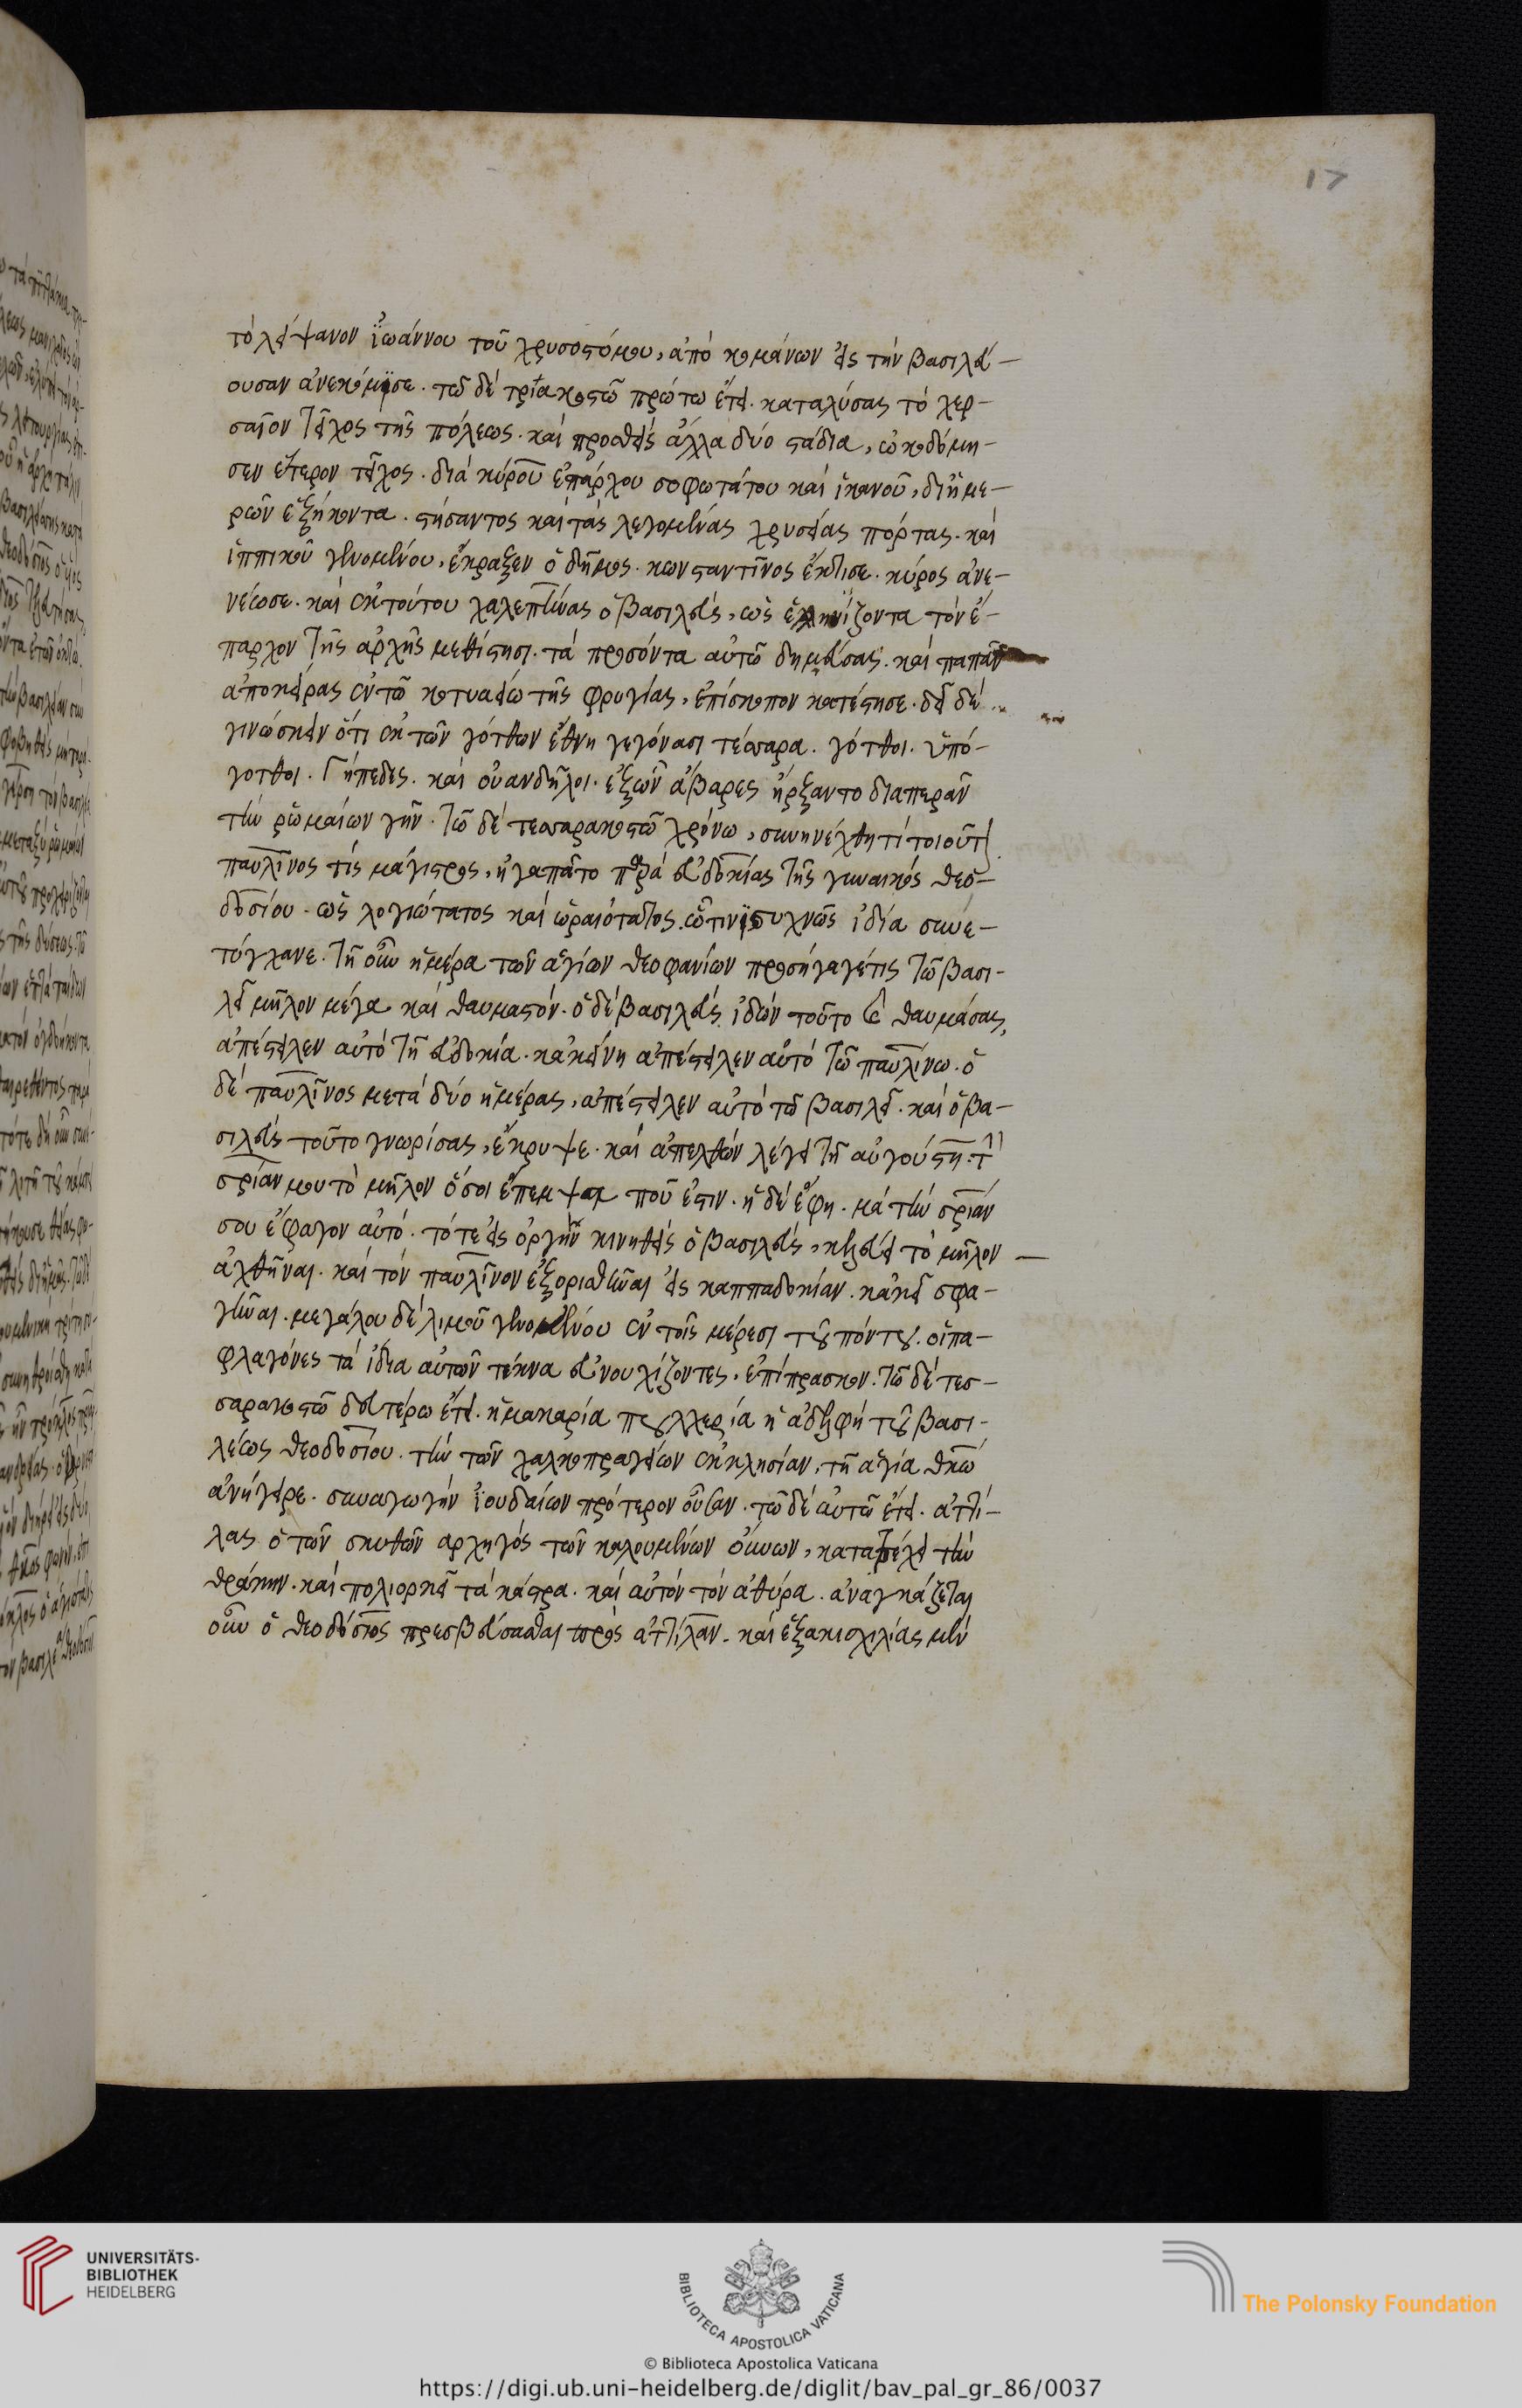 17
τὸ λείψανον ἰωάννου τοῦ χρυσοστόμου, ἀπὸ κομάνων εἰς τὴν βασιλεύ-
ουσαν ἀνεκόμισε. τῶ δὲ τριακοστῶ πρώτω ἔτει. καταλύσας τὸ χερ-
σαῖον τεῖχος τῆς πόλεως. καὶ προσθεὶς ἄλλα δύο στάδια, ὠκοδόμη-
σεν ἕτερον τεῖχος. διὰ κύρου ἐπάρχου σοφωτάτου καὶ ἱκανοῦ, δι' ἡμε-
ρῶν ἑξήκοντα. στήσαντος καὶ τὰς λεγομένας χρυσέας πόρτας. καὶ
ἱππικοῦ γενομένου, ἔκραξεν ὁ δῆμος. κωνσταντῖνος ἔκτισε. κύρος ἀνε-
νέωσε. καὶ ἐκ τούτου χαλεπήνας ὁ βασιλεὺς, ὡς ἑλληνίζοντα τὸν ἔ-
παρχον τῆς ἀρχῆς μεθίστησι. τὰ προσόντα αὐτῶ δημεύσας. καὶ παπᾶν
ἀποκείρας ἐν τῶ κοτυαείω τῆς φρυγίας, ἐπίσκοπον κατέστησε. δεῖ δὲ
γινώσκειν ὅτι ἐκ τῶν γότθων ἔθνη γεγόνασι τέσσαρα. γότθοι. ὑπό-
γοτθοι. Γήπεδες. καὶ οὐανδῆλοι. ἐξ ὧν ἄβαρες ἤρξαντο διαπερᾶν
τὴν ῥωμαίων γῆν. τῶ δὲ τεσσαρακοστῶ χρόνω, συνηνέχθη τὶ τοιοῦτον.
παυλῖνος τίς μάγιστρος, ἠγαπᾶτο παρὰ εὐδοκίας τῆς γυναικὸς θεο-
δοσίου. ὡς λογιώτατος καὶ ὡραιότατος. ᾧτινι συχνῶς ἰδία συνε-
τύγχανε. τῆ οὖν ἡμέρα τῶν ἁγίων θεοφανίων προσήγαγέ τις τῶ βασι-
λεῖ μῆλον μέγα καὶ θαυμαστόν. ὁ δὲ βασιλεὺς ἰδὼν τοῦτο καὶ θαυμάσας,
ἀπέστειλεν αὐτὸ τῆ εὐδοκία. κἀκείνη ἀπέστειλεν αὐτὸ τῶ παυλίνω. ὁ
δὲ παυλῖνος μετὰ δύο ἡμέρας, ἀπέστειλεν αὐτὸ τῶ βασιλεῖ. καὶ ὁ βα-
σιλεὺς τοῦτο γνωρίσας, ἔκρυψε. καὶ ἀπελθὼν λέγει τῆ αὐγούστη. τὴν
σρίαν μου τὸ μῆλον ὅ σοι ἔπεμψα ποῦ ἐστιν. ἡ δὲ ἔφη. μὰ τὴν σρίαν
σου ἔφαγον αὐτό. τότε εἰς ὀργὴν κινηθεὶς ὁ βασιλεὺς, κελεύει τὸ μῆλον
ἀχθῆναι. καὶ τὸν παυλῖνον ἐξορισθῆναι εἰς καππαδοκίαν. κἀκεῖ σφα-
γῆναι. μεγάλου δὲ λιμοῦ γενομένου ἐν τοῖς μέρεσι τοῦ πόντου. οἱ πα-
φλαγόνες τὰ ἴδια αὐτῶν τέκνα εὐνουχίζοντες, ἐπίπρασκον. τῶ δὲ τεσ-
σαρακοστῶ δευτέρω ἔτει. ἡ μακαρία πουλχερία ἡ ἀδελφὴ τοῦ βασι-
λέως θεοδοσίου. τὴν τῶν χαλκοπρατείων ἐκκλησίαν, τῆ ἁγία θκω
ἀνήγειρε. συναγωγὴν ἰουδαίων πρότερον οὖσαν. τῶ δὲ αὐτῶ ἔτει. ἀττί-
λας ὁ τῶν σκυθῶν ἀρχηγὸς τῶν καλουμένων οὕννων, κατατρέχει τὴν
θράκην. καὶ πολιορκεῖ τὰ κάστρα. καὶ αὐτὸν τὸν ἀθύρα. ἀναγκάζεται
οὖν ὁ θεοδόσιος πρεσβεύσασθαι πρὸς ἀττίλαν. καὶ ἑξακισχιλίας μὲν
UNIVERSITÄTS-
BIBLIOTHEK
HEIDELBERG
BIBLIOTECA APOSTOLICA VATICANA
The Polonsky Foundation
© Biblioteca Apostolica Vaticana
https://digi.ub.uni-heidelberg.de/diglit/bav_pal_gr_86/0037